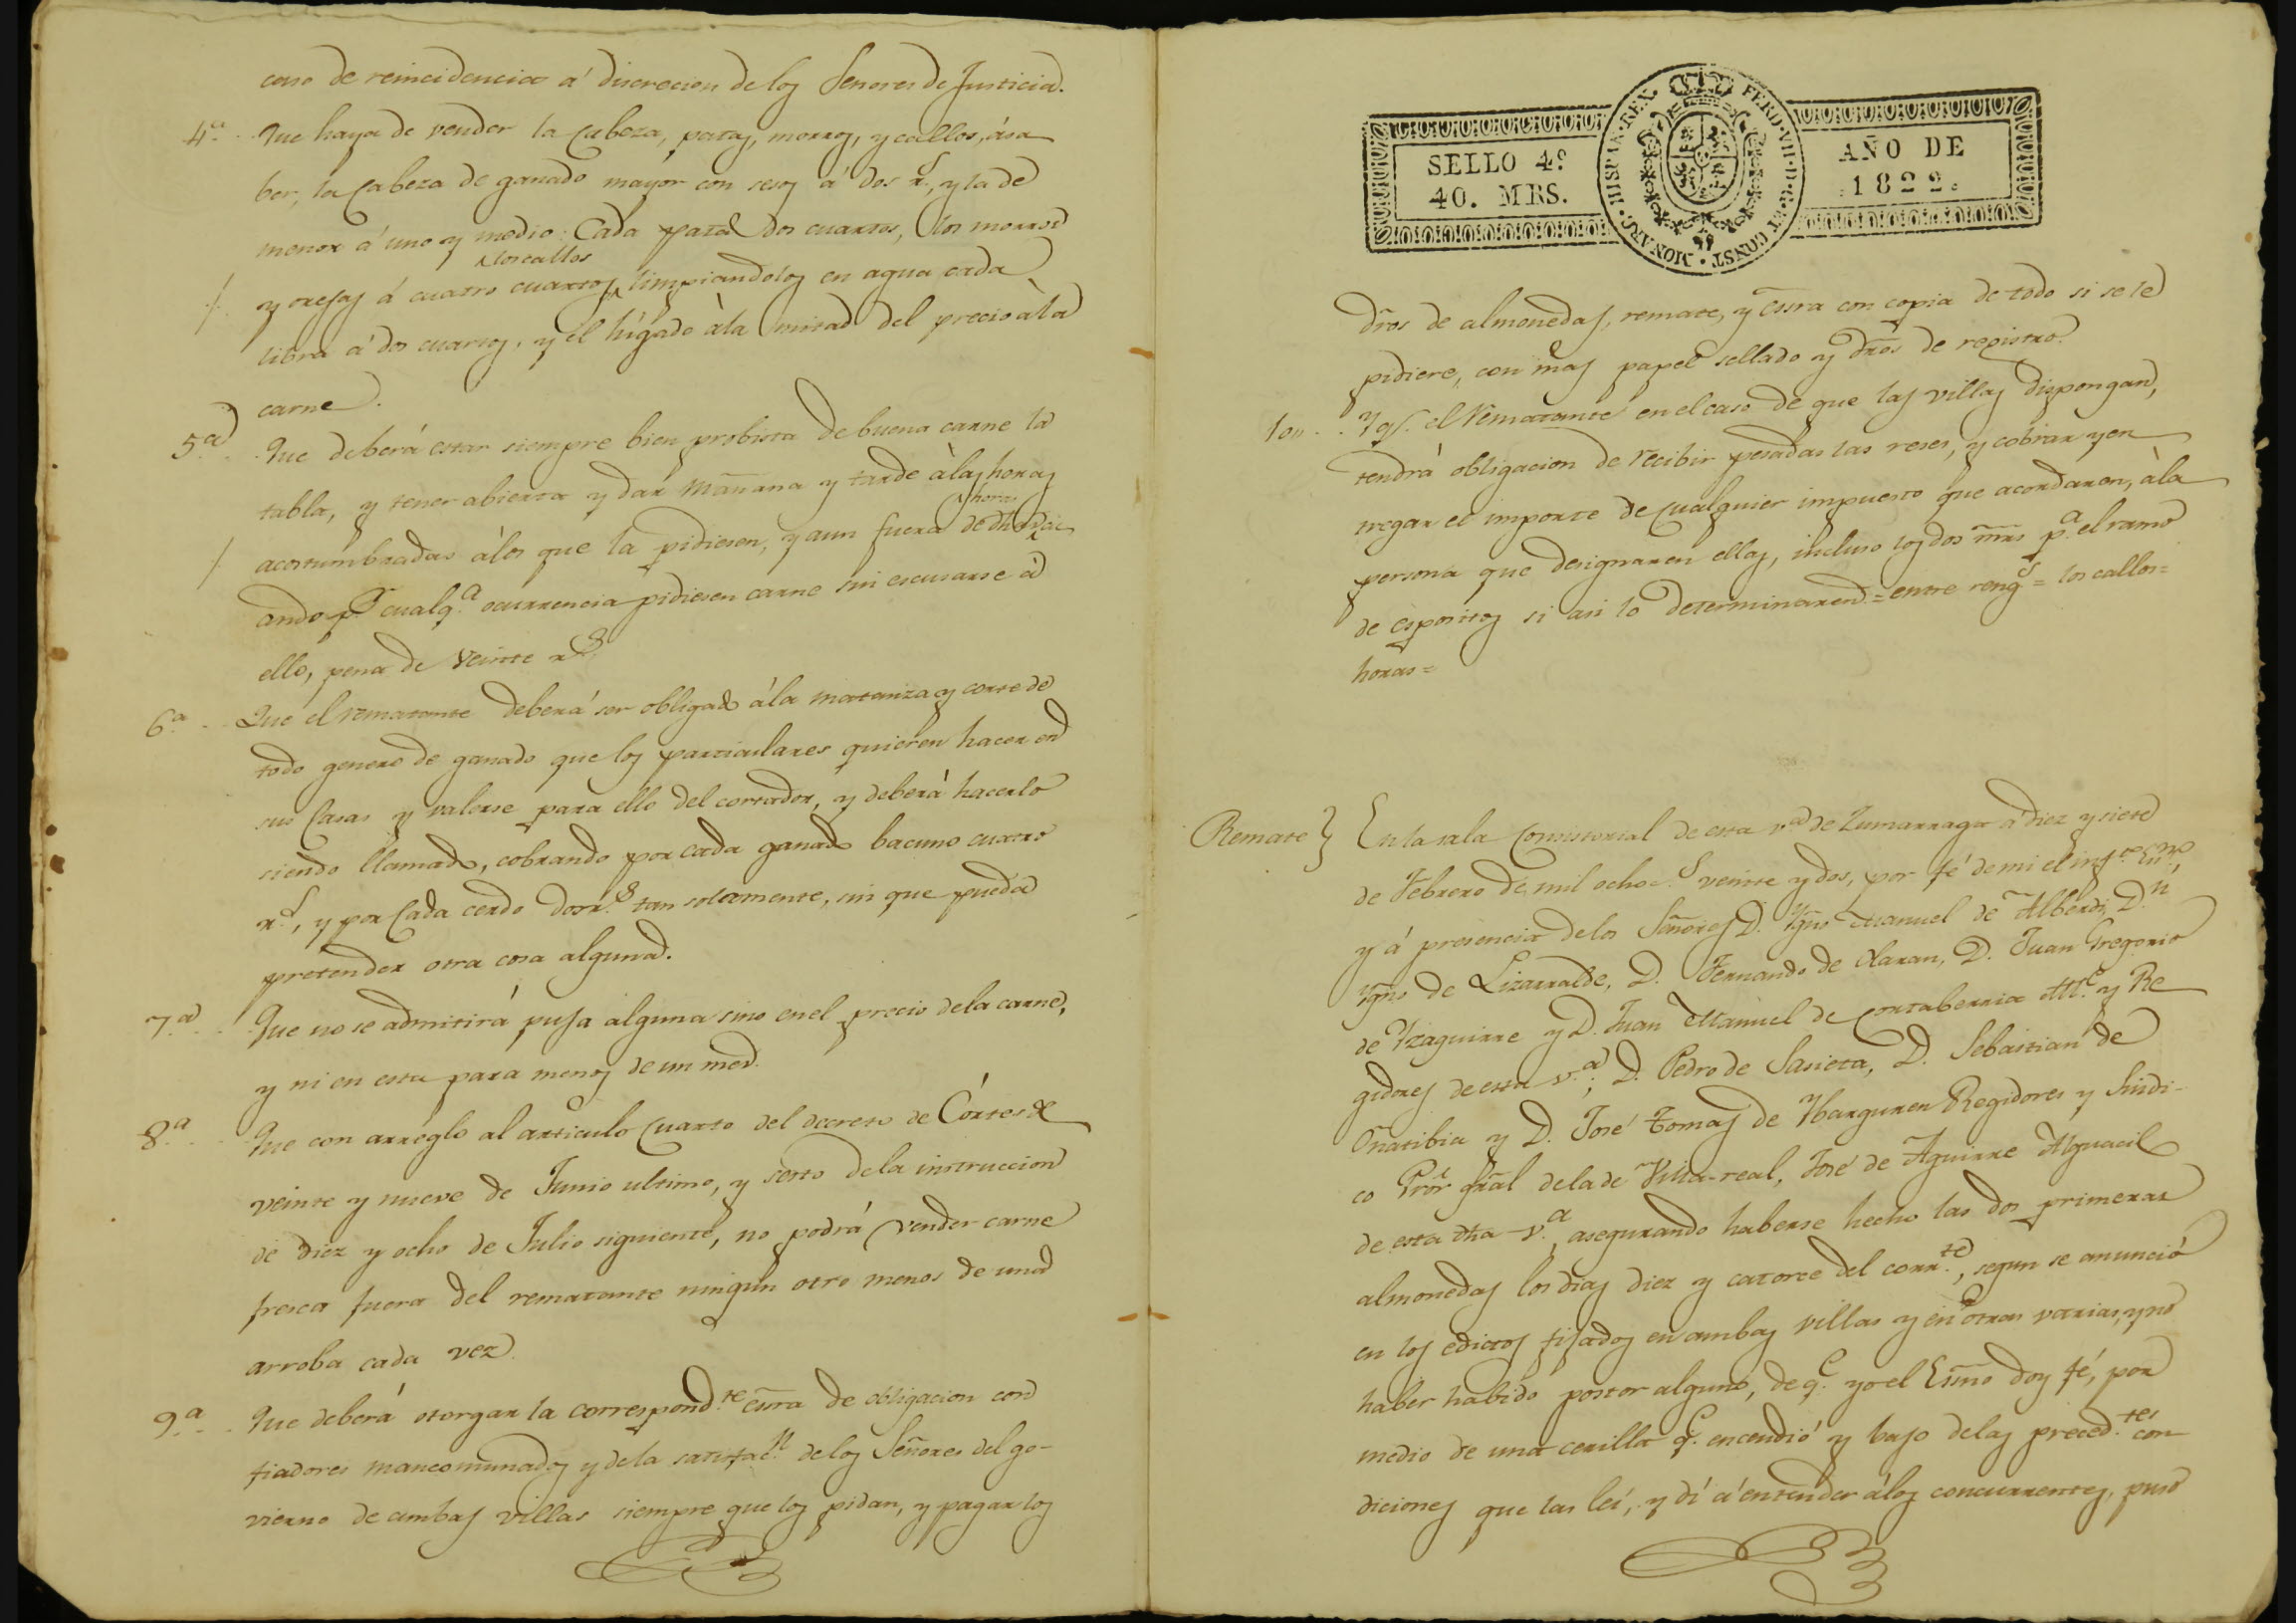 caso de reincidencia á discrecion de los Señores de Justicia.
4.ª Que haya de vender la Cabeza, patas, morros, y callos, ása
ber, la Cabeza de ganado mayor con sesos á dos r.s, y la de
menor á uno y medio: Cada pata dos cuartos, los morros
los callos
y orejas á cuatro cuartos, limpiandolos en agua cada
libra á dos cuartos, y el hígado àla mitad del precio àla
carne.
5.ª Que deberá estar siempre bien probista de buena carne la
tabla, y tener abierta y dar mañana y tarde àlas horas
horas
acostumbradas álos que la pidiesen, y aun fuera de dhas
ando p.r cualq.a ocurrencia pidiesen carne sin escusarse á
ello, pena de veinte r.s
6.ª Que el rematante deberá ser obligado ála matanza y corte de
todo genero de ganado que los particulares quieren hacer en
sus Casas y valerse para ello del cortador, y deberá hacerlo
siendo llamado, cobrando por cada ganado bacuno cuatro
r.s, y por Cada cerdo dos r.s tan solamente, sin que pueda
pretender otra cosa alguna.
7.ª Que no se admitirá puja alguna sino en el precio dela carne,
y ni en esta para menos de un mrd.
8.ª Que con arreglo al articulo Cuarto del decreto de Córtes de
veinte y nueve de Junio ultimo, y sesto dela instruccion
de diez y ocho de Julio siguiente, no podrá vender carne
fresca fuera del rematante ningun otro menos de una
arroba cada vez.
9.ª Que deberá otorgar la correspond.te esra de obligacion con
fiadores mancomunados y dela satisfac.n delos Señores del go-
vierno de ambas villas siempre que los pidan, y pagar los
MONARC. HISPIA. REX. FERD. VII. D. G. ET CONST
SELLO 4º
40. MRS.
AÑO DE
1822.
dros de almonedas, remate, y essra con copia de todo si se le
pidiere, con mas papel sellado y dros de registro.
10,, Y q.e el Rematante en el caso de que las villas dispongan,
tendrá obligacion de recibir pesadas las reses, y cobrar y en
tregar el importe de cualquier impuesto que acordaren, àla
persona que designaren ellas, incluso los dos mrs p.a el ramo
de espositos si asi lo determinaren.=entre reng.s = los callos=
horas=
Remate } En la sala Consistorial de esta v.a de Zumarraga a diez y siete
de Febrero de mil ochoc.s veinte y dos, por fé de mi el inf.to Esno,
y á presencia delos Señores D. Ygno Manuel de Alberdi, D.n
Ygno de Lizarralde, D. Fernando de Alaran, D. Juan Gregorio
de Yzaguirre y D. Juan Manuel de Cortaberria Alc.e y Re
gidores de esta v.a; D. Pedro de Sasieta, D. Sebastian de
Oñatibia y D. José Tomas de Ybarguren Regidores y Sindi-
co Pror gral dela de Villa-real, José de Aguirre Alguacil
de esta dha v.a asegurando haberse hecho las dos primeras
almonedas los dias diez y catorce del corr.te, segun se anunció
en los edictos fijados en ambas villas y en otras varias, y no
haber habido postor alguno, de q.e yo el Esno doy fé, por
medio de una cerilla q.e encendió y bajo delas preced.tes con
diciones que las leí, y dí á entender álos concurrentes, puso